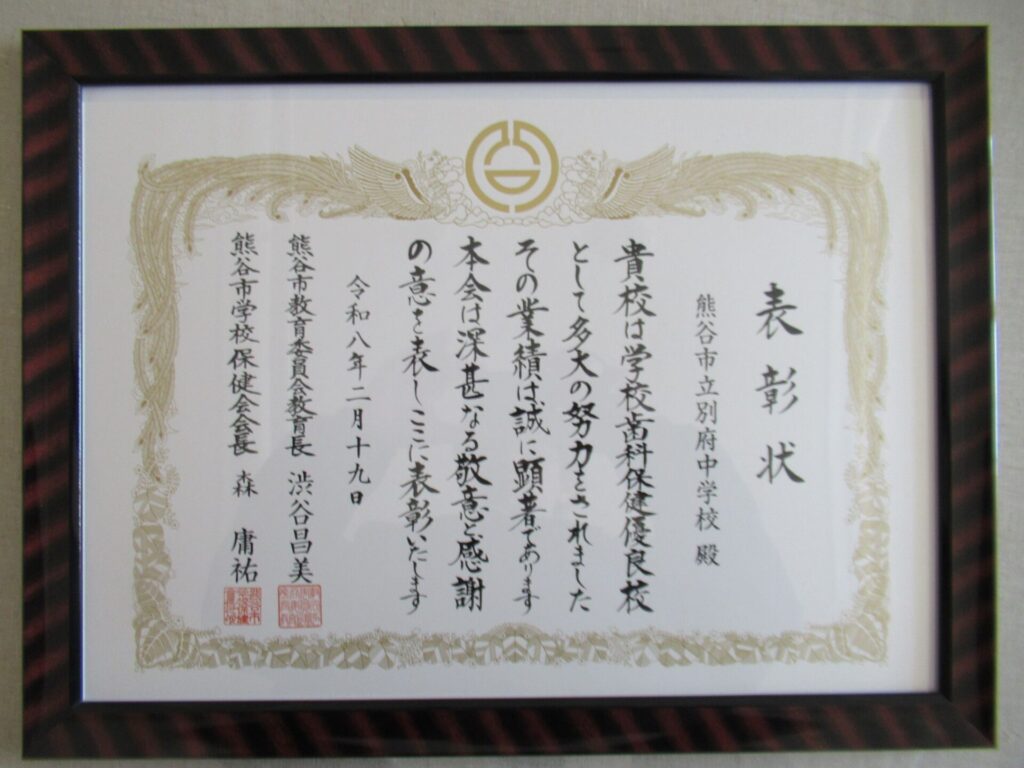 表彰状
熊谷市立別府中学校 殿
貴校は学校歯科保健優良校
として多大の努力をされました
その業績は誠に顕著であります
本会は深甚なる敬意と感謝
の意を表しここに表彰いたします
令和八年二月十九日
熊谷市教育委員会教育長 渋谷昌美
熊谷市学校保健会会長 森 庸祐